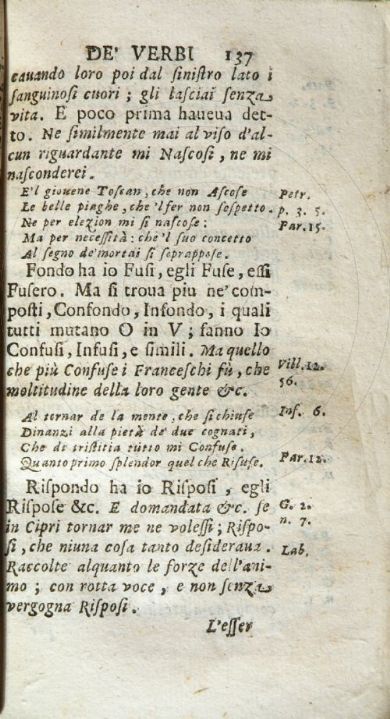 DE' VERBI 137
cauando loro poi dal ſiniſtro lato i
ſanguinoſi cuori ; gli laſciai ſenza
vita. E poco prima haueua det-
to. Ne ſimilmente mai al viſo d'al-
cun riguardante mi Naſcoſi , ne mi
naſconderei.
E'l giouene Toſcan, che non Aſcoſe Petr.
Le belle piaghe, che 'lfer non ſoſpetto. p. 3. 5.
Ne per elezion mi ſi naſcoſe: Par. 15.
Ma per neceſſità: che 'l ſuo concetto
Al ſegno de'mortai ſi ſoprappoſe.
Fondo ha io Fuſi, egli Fuſe, eſſi
Fuſero. Ma ſi troua più ne' com-
poſti, Confondo, Infondo, i quali
tutti mutano O in V; fanno Io
Confuſi, Infuſi, e ſimili. Ma quello
che più Confuſe i Franceſchi fù, che Vill. 12.
moltitudine della loro gente &c. 56.
Al tornar de la mente, che ſi chiuſe Inf. 6.
Dinanzi alla pietà de' due cognati,
Che di triſtitia tutto mi Confuſe.
Quanto primo ſplendor quel che Rifuſe. Par. 12.
Riſpondo ha io Riſpoſi , egli
Riſpoſe &c. E domandata &c. ſe G. 2.
in Cipri tornar me ne voleſſi; Riſpo- n. 7.
ſi, che niuna coſa tanto deſideraua. Lab.
Raccolte alquanto le forze dell'ani-
mo ; con rotta voce , e non ſenza
vergogna Riſpoſi.
L'eſſer